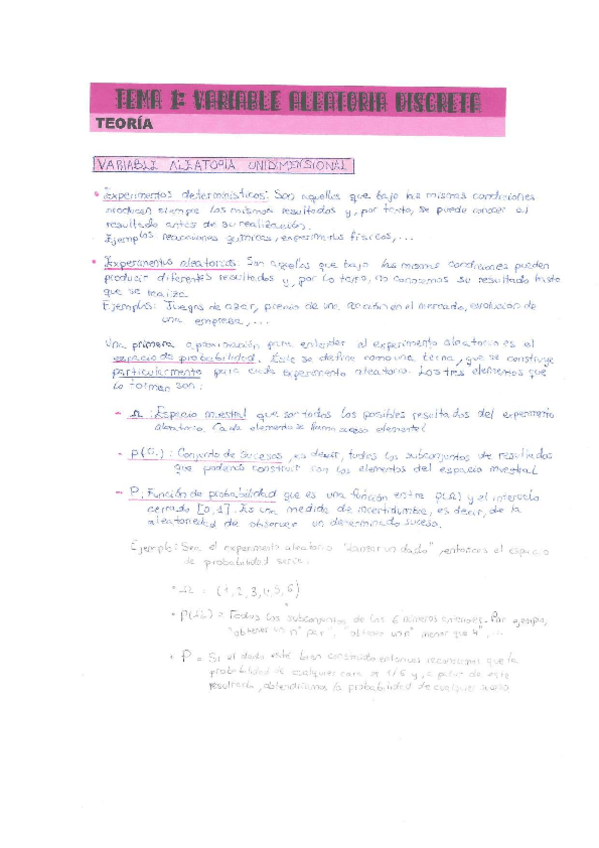 TEMA 1: VARIABLE ALEATORIA DISCRETA
TEORÍA
VARIABLE ALEATORIA UNIDIMENSIONAL
• Experimentos determinísticos: Son aquellos que bajo las mismas condiciones
producen siempre los mismos resultados y, por tanto, se puede conocer el
resultado antes de su realización.
Ejemplos reacciones químicas, experimentos físicos, ...
• Experimentos aleatorios: Son aquellos que bajo las mismas condiciones pueden
producir diferentes resultados y, por lo tanto, no conocemos su resultado hasta
que se realiza
Ejemplos: Juegos de azar, precio de una acción en el mercado, evolución de
una empresa, ...
Una primera aproximación para entender el experimento aleatorio es el
espacio de probabilidad. Este se define como una terna, que se construye
particularmente para cada experimento aleatorio. Los tres elementos que
lo forman son:
- Ω: Espacio muestral que son todos los posibles resultados del experimento
aleatorio. Cada elemento se llama suceso elemental
- P(Ω): Conjunto de sucesos, es decir, todos los subconjuntos de resultados
que podemos construir con los elementos del espacio muestral
- P: Función de probabilidad que es una función entre P(Ω) y el intervalo
cerrado [0,1]. Es una medida de incertidumbre, es decir, de la
aleatoriedad de observar un determinado suceso.
Ejemplo: Sea el experimento aleatorio "lanzar un dado", entonces el espacio
de probabilidad sería:
• Ω = {1,2,3,4,5,6}
• P(Ω) = Todos los subconjuntos de los 6 números anteriores. Por ejemplo,
"obtener un nº par", "obtener un nº menor que 4", ...
• P = Si el dado está bien construido entonces reconocemos que la
probabilidad de cualquier cara es 1/6 y, a partir de este
resultado, obtendríamos la probabilidad de cualquier suceso